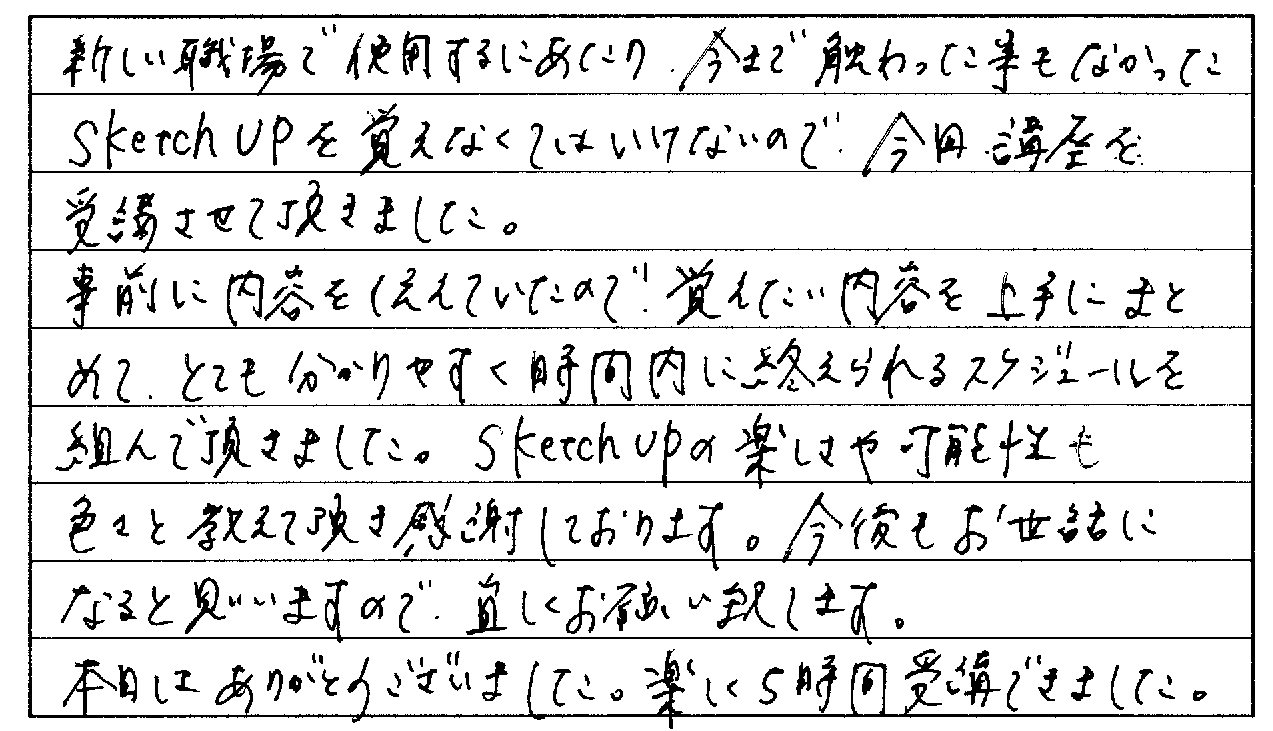 新しい職場で使用するにあたり、今まで触わった事もなかった
SketchUPを覚えなくてはいけないので、今回講座を
受講させて頂きました。
事前に内容を伝えていたので、覚えたい内容を上手にまと
めて、とても分かりやすく時間内に終えられるスケジュールを
組んで頂きました。SketchUpの楽しさや可能性も
色々と教えて頂き感謝しております。今後もお世話に
なると思いますので、宜しくお願い致します。
本日はありがとうございました。楽しく5時間受講できました。